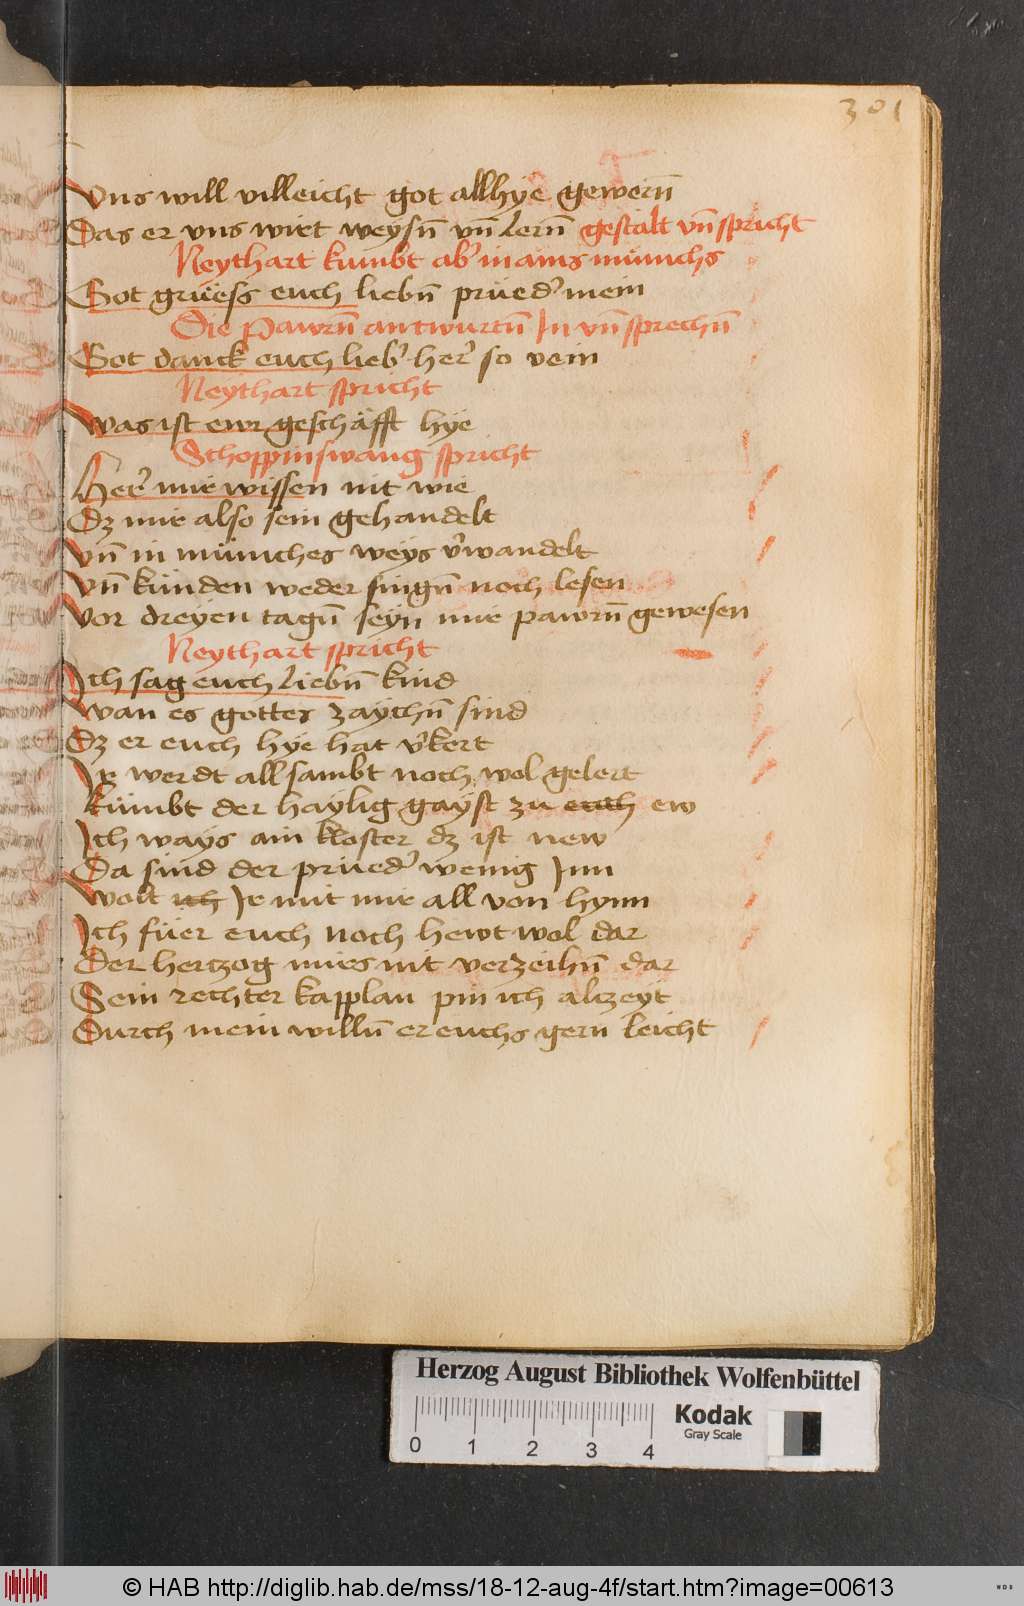 301
Uns will villeicht got allhÿe gewern̄
Das er vns wirt weysn̄ vn̄ lern̄ gestalt vn̄ spricht
Neythart kumbt ab᷑ in ains münichs
Got grüess euch liebn̄ prüed᷑ mein
Die pawrn̄ antwurtn̄ Jn vn̄ sprechn̄
Got danck euch lieb᷑ her᷑ so vein
Neythart spricht
Was ist ewr geschäfft hÿe
Schoppinswang spricht
Her᷑ mir wissen nit wie
Dz mir also sein gehandelt
vn̄ in müniches weÿs v᷑wandelt
vn̄ künden weder singn̄ noch lesen
Vor dreÿen tagn̄ seÿn mir pawrn̄ gewesen
Neythart spricht
Ich sag euch liebn̄ kind
Wan es gottes zaÿchn̄ sind
Dz er euch hÿe hat v᷑kert
Jr werdt all sambt noch wol gelert
kümbt der haÿlig gaÿst zu euch ew
Ich waÿs ain kloster dz ist new
Da sind der prüed᷑ wenig Jnn
Wolt ich Jr mit mir all von hynn
Ich füer euch noch hewt wol dar
Der hertzog mües nit verzeihn̄ dar
Sein rechter kapplan pin ich alczeÿt
Durch mein willn̄ er euchs gern leicht
Herzog August Bibliothek Wolfenbüttel
0 1 2 3 4
Kodak
Gray Scale
© HAB http://diglib.hab.de/mss/18-12-aug-4f/start.htm?image=00613